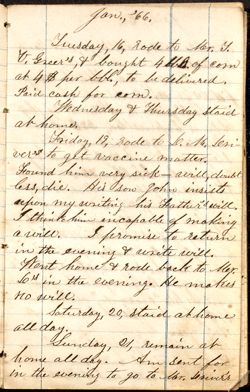 Jan, '66.
Tuesday, 16, rode to Mr. T.
V. Greer's, & bought 4 bbls of corn
at 4$ per bbl, to be delivered.
Paid cash for corn.
Wednesday & Thursday staid
at home.
Friday, 19, rode to J. M.
to get vaccine matter.
Found him very sick — will, doubt
less, die. His son John insists
upon my writing his Father's will.
I think him incapable of making
a will. I promise to return
in the evening & write will.
Went home & rode back to Mr.
in the evening. He makes
no will.
Saturday, 20, staid at home
all day.
Sunday, 21, remain at
home all day. Am sent for
in the evening to go to Mr.